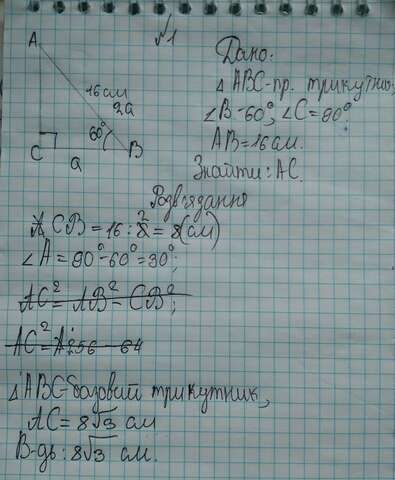 №1
A
16см
2a
60°
C
a
B
Дано:
△ABC-пр. трикутник
∠B-60°, ∠C=90°.
AB=16см.
Знайти: AC.
Розв'язання
CB=16:2=8(см)
∠A=90°-60°=30°;
AC²=AB²-CB²;
AC²=256-64
△ABC-базовий трикутник,
AC=8√3 см
В-дь: 8√3 см.